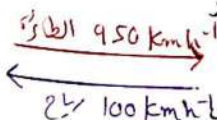 الطائرة 950 Kmh⁻¹
رياح 100 Kmh⁻¹